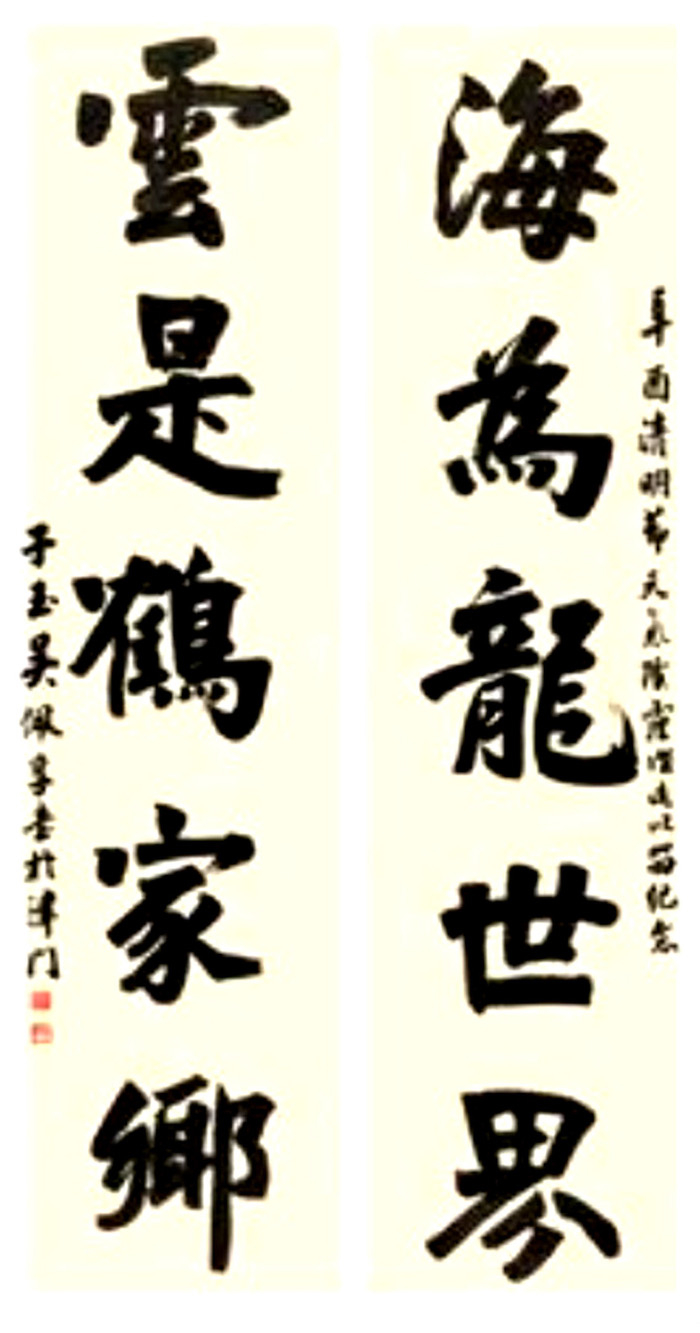 海為龍世界
辛酉清明節天氣陰霾
以留紀念
雲是鶴家鄉
子玉吳佩孚書於津门